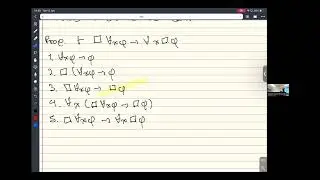 Proof ⊢ □∀xφ → ∀x□φ
1. ∀xφ → φ
2. □(∀xφ → φ
3. □∀xφ → □φ
4. ∀x(□∀xφ → □φ)
5. □∀xφ → ∀x□φ